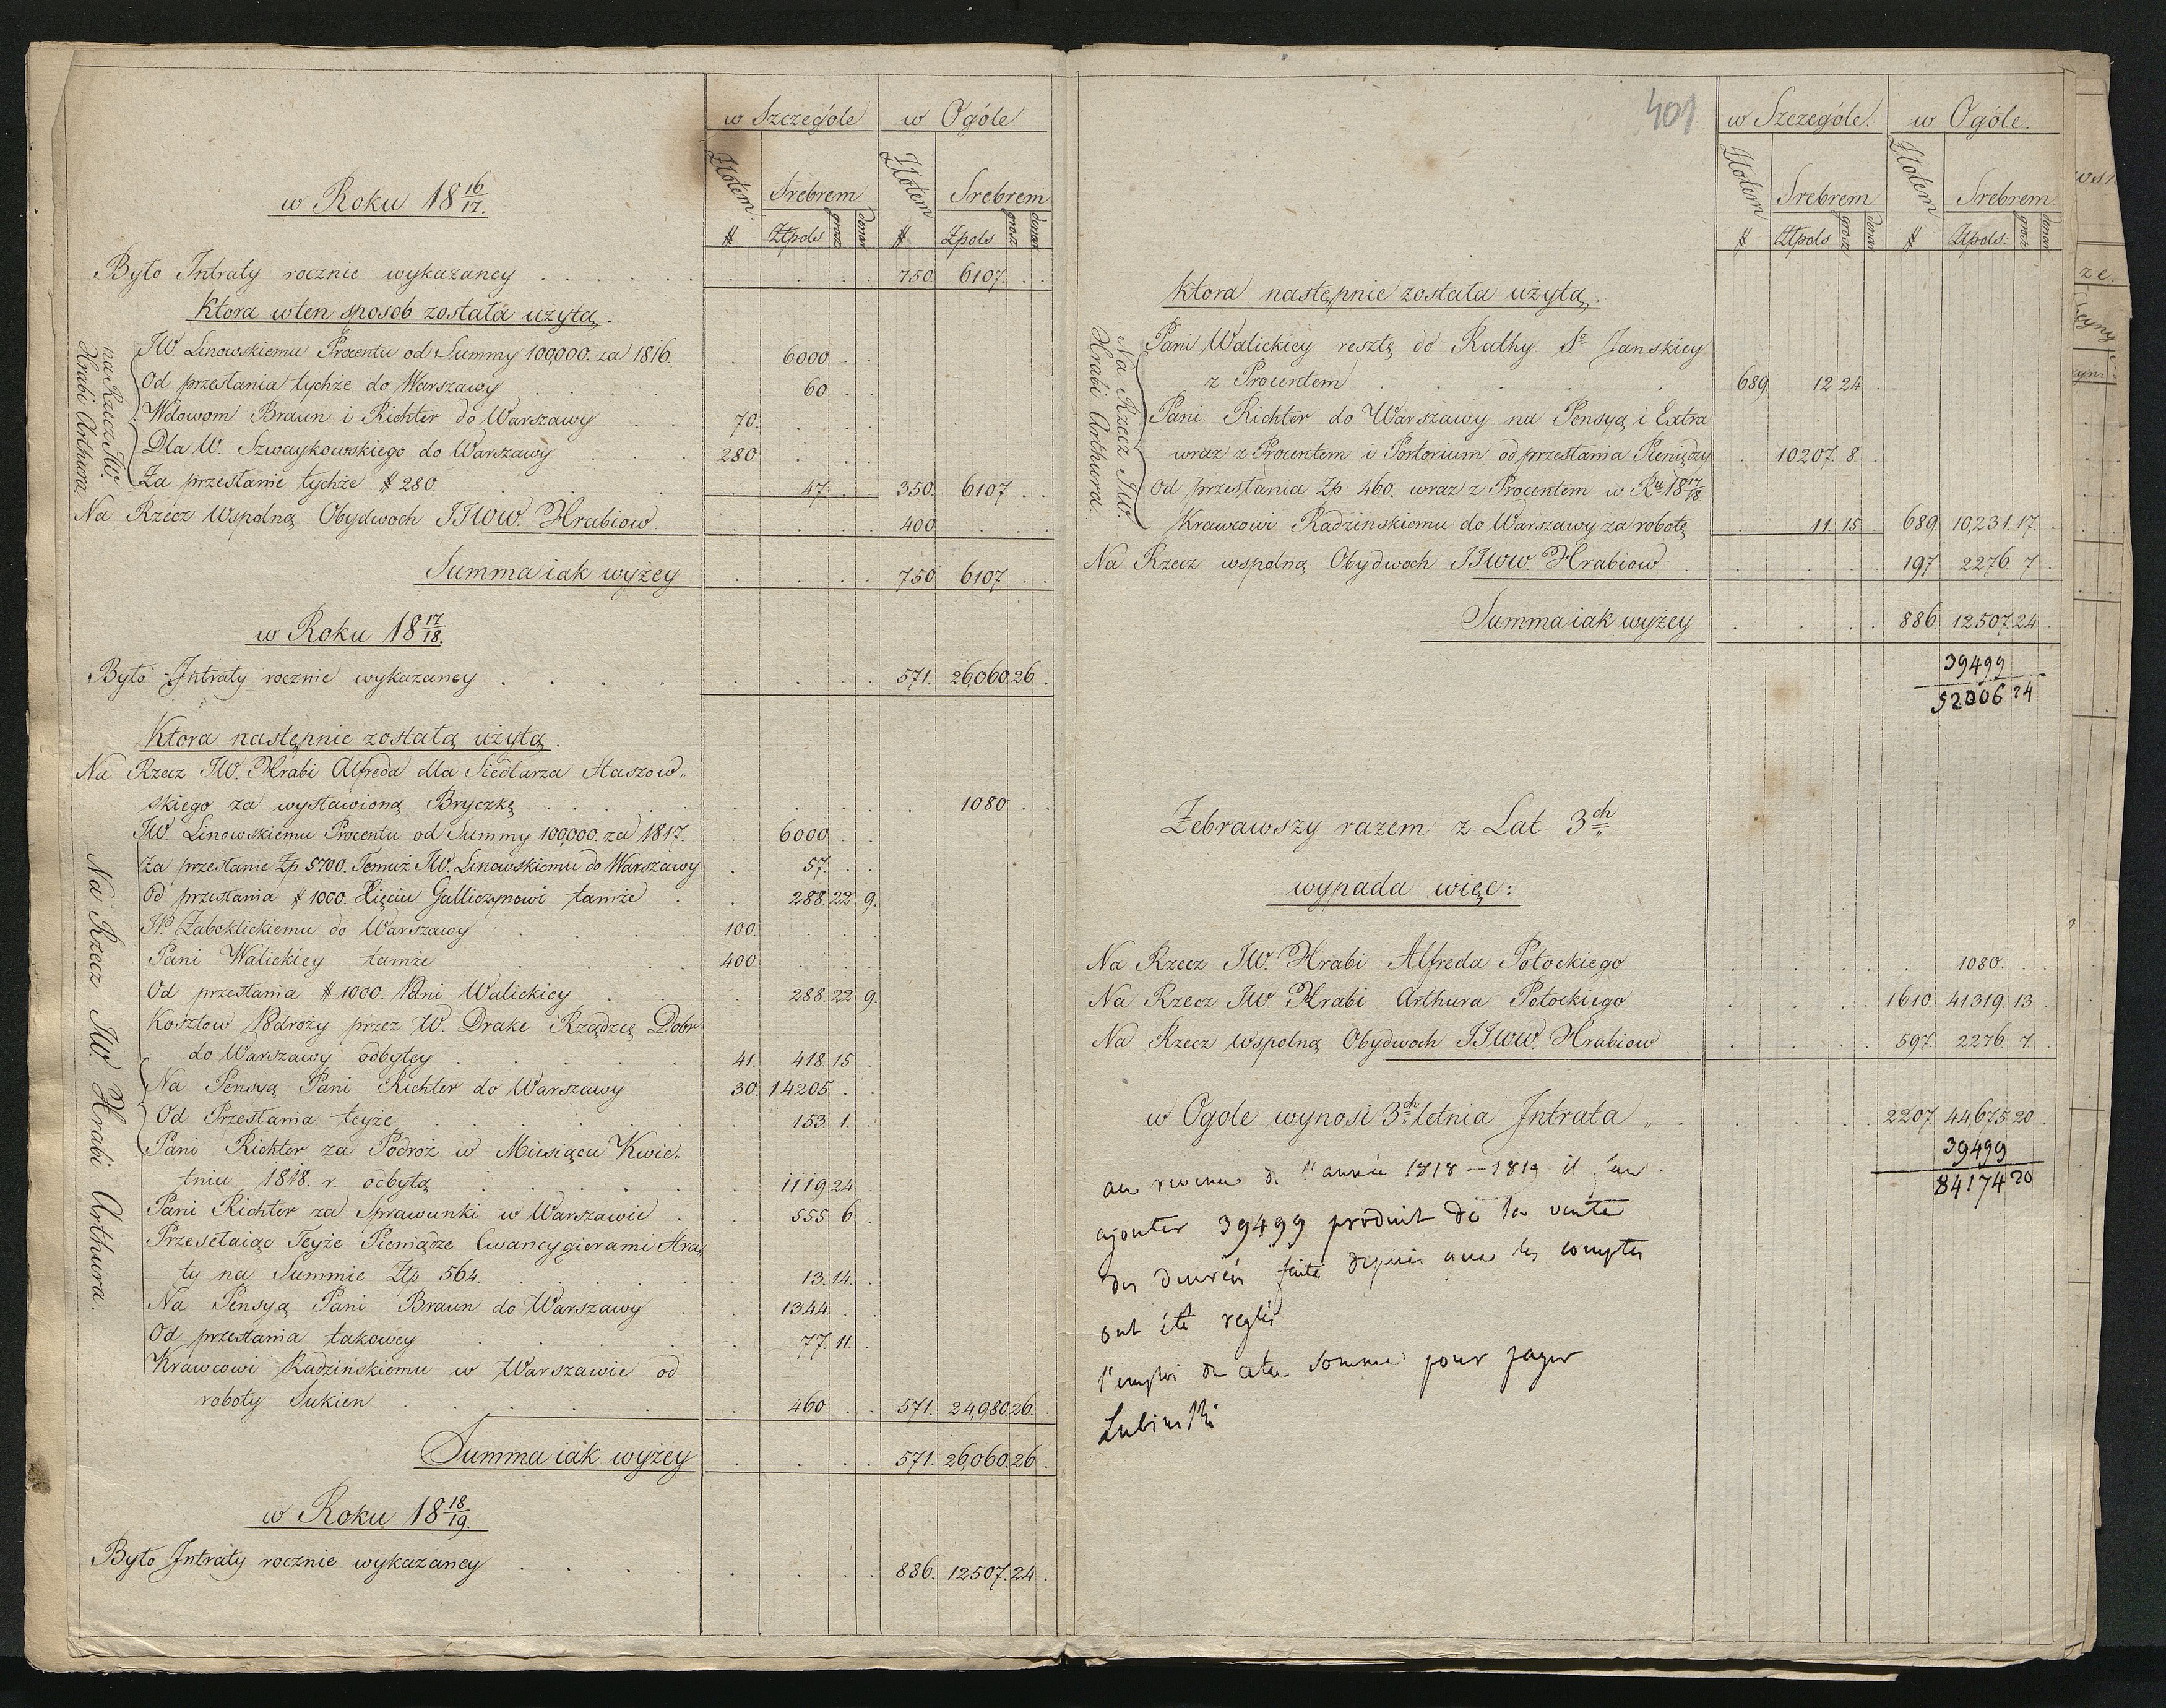 w Szczególe w Ogóle
Złotem Srebrem Złotem Srebrem
# Złpols grosz denar # Zpols grosz denar
w Roku 18 16/17.
Było Intraty rocznie wykazaney . . . . 750. 6107. . .
Ktora wten sposob została użytą.
na Rzecz JW. Hrabi Arthura
JW. Linowskiemu Procentu od Summy 100,000. za 1816. . 6000 . .
Od przesłania tychże do Warszawy . 60 . .
Wdowom Braun i Richter do Warszawy 70. . . .
Dla W. Szwaykowskiego do Warszawy 280 . . .
Za przesłanie tychże # 280. . 47. . . 350. 6107 . .
Na Rzecz Wspolną Obydwoch JJWW. Hrabiow. . . . . 400. . . .
Summa iak wyżey . . . . 750 6107 . .
w Roku 18 17/18.
Było Intraty rocznie wykazaney . . . . 571. 26,060.26 .
Ktora następnie zostatą użytą.
Na Rzecz JW. Hrabi Alfreda dla Siedlarza Staszow„
skiego za wystawioną Bryczkę . . . . . 1080 . .
Na Rzecz JW. Hrabi Arthura.
JW. Linowskiemu Procentu od Summy 100,000. za 1817. . 6000 . .
Za przesłanie Zp 5700. Temuż JW. Linowskiemu do Warszawy . 57. . .
Od przesłania # 1000. Xięciu Galliczynowi tamże . 288.22 9.
JP Zaboklickiemu do Warszawy 100. . . .
Pani Walickiey tamże 400. . . .
Od przesłania # 1000. Pani Walickiey . 288.22 9.
Kosztow Podroży przez W. Drake Rządzcę Dobr
do Warszawy odbytey 41. 418.15 .
Na Pensyą Pani Richter do Warszawy 30. 14205 . .
Od Przesłania teyże . 153. 1. .
Pani Richter za Podroż w Miesiącu Kwie„
tniu 1818. r. odbytą . 1119.24 .
Pani Richter za Sprawunki w Warszawie . 555 6 .
Przesełaiąc Teyże Pieniądze Cwancygierami Stra
ty na Summie Złp 564. . 13.14. .
Na Pensyą Pani Braun do Warszawy . 1344. . .
Od przesłania takowey . 77. 11. .
Krawcowi Radzińskiemu w Warszawie od
roboty Sukien . 460 . . 571. 24,980.26. .
Summa iak wyżey . . . . 571. 26,060.26 .
w Roku 18 18/19.
Było Intraty rocznie wykazaney . . . . 886. 12507.24 .
401
w Szczególe. w Ogóle.
Złotem Srebrem Złotem Srebrem.
# Złpols grosz denar # Złpols: grosz denar
Ktora następnie została użytą.
Na Rzecz JW. Hrabi Arthura.
Pani Walickiey resztę do Rathy Sº Janskiey
z Procentem 689. 12 24 .
Pani Richter do Warszawy na Pensyą i Extra
wraz z Procentem i Portorium od przesłania Pieniędzy . 10207. 8 .
Od przesłania Zp 460. wraz z Procentem w Ru 18 17/18.
Krawcowi Radzinskiemu do Warszawy za robotę . 11. 15 . 689. 10,231.17. .
Na Rzecz wspolną Obydwoch JJWW. Hrabiow . . . . 197 2276. 7 .
Summa iak wyżey . . . . 886. 12507.24 .
39499
52006 24
Zebrawszy razem z Lat 3ch
wypada więc:
Na Rzecz JW. Hrabi Alfreda Potockiego . . . . . 1080. . .
Na Rzecz JW. Hrabi Arthura Potockiego . . . . 1610. 41319. 13 .
Na Rzecz Wspolną Obydwoch JJWW. Hrabiow . . . . 597. 2276. 7. .
w Ogole wynosi 3ch letnia Intrata „ . . . . 2207. 44,675 20 .
39499
84174 20
au revenu de l'année 1818 – 1819 il faut
ajouter 39499 produit de la vente
des denrées faite depuis que les comptes
ont été reglés
l'emploi de cette somme pour payer
Lubinski